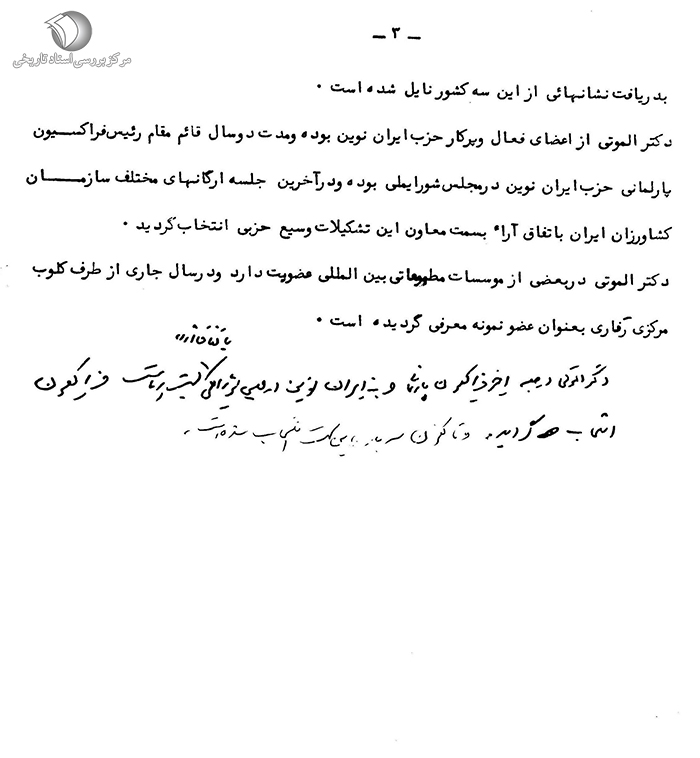 مرکز بررسی اسناد تاریخی
ـ ۳ ـ
بدریافت نشانهائی از این سه کشور نایل شده است .
دکتر الموتی از اعضای فعال وپرکار حزب ایران نوین بوده ومدت دوسال قائم مقام رئیس فراکسیون
پارلمانی حزب ایران نوین درمجلس شورایملی بوده ودرآخرین جلسه ارگانهای مختلف سازمان
کشاورزان ایران باتفاق آراء بسمت معاون این تشکیلات وسیع حزبی انتخاب گردید .
دکتر الموتی دربعضی از موسسات مطبوعاتی بین المللی عضویت دارد ودرسال جاری از طرف کلوب
مرکزی رفاری بعنوان عضو نمونه معرفی گردیده است .
باتفاق آراء
دکتر الموتی در جلسه اخیر فراکسیون پارلمانی ایران نوین در مجلس شورایملی ریاست فراکسیون
انتخاب گردید. وتاکنون سه بار باین سمت انتخاب شده است .